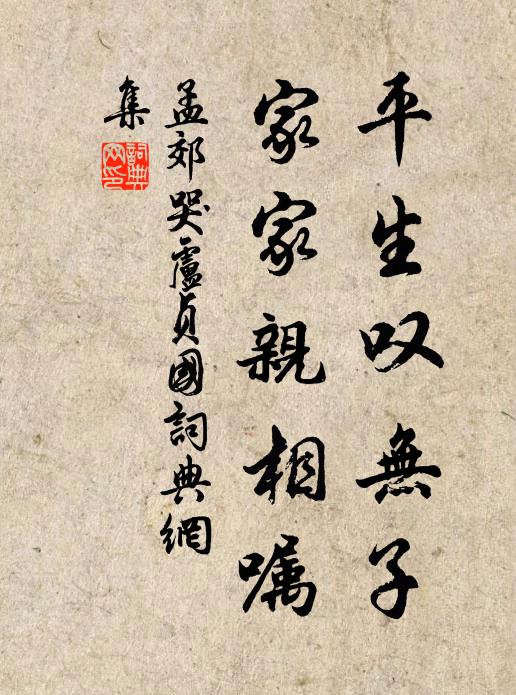 平生叹無子
家家親相嘱
孟郊哭盧貞國詞典網
集
詞典網印